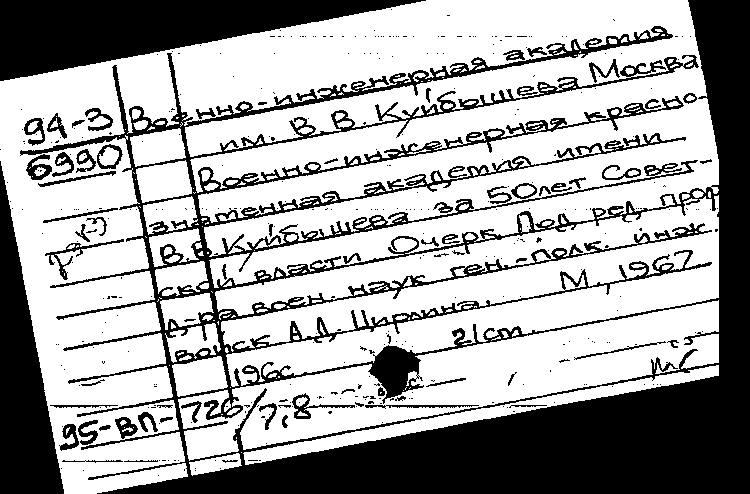 94-3 Военно-инженерная академия
6990 им. В.В. Куйбышева Москва
Военно-инженерная красно-
знаменная академия имени
В.В. Куйбышева за 50 лет Совет-
ской власти. Очерк. Под ред. проф.
д-ра воен. наук ген.-полк. инж.
войск А.Д. Цирлина. М., 1967
196с. 21 cm.
95-ВП-726/7,8